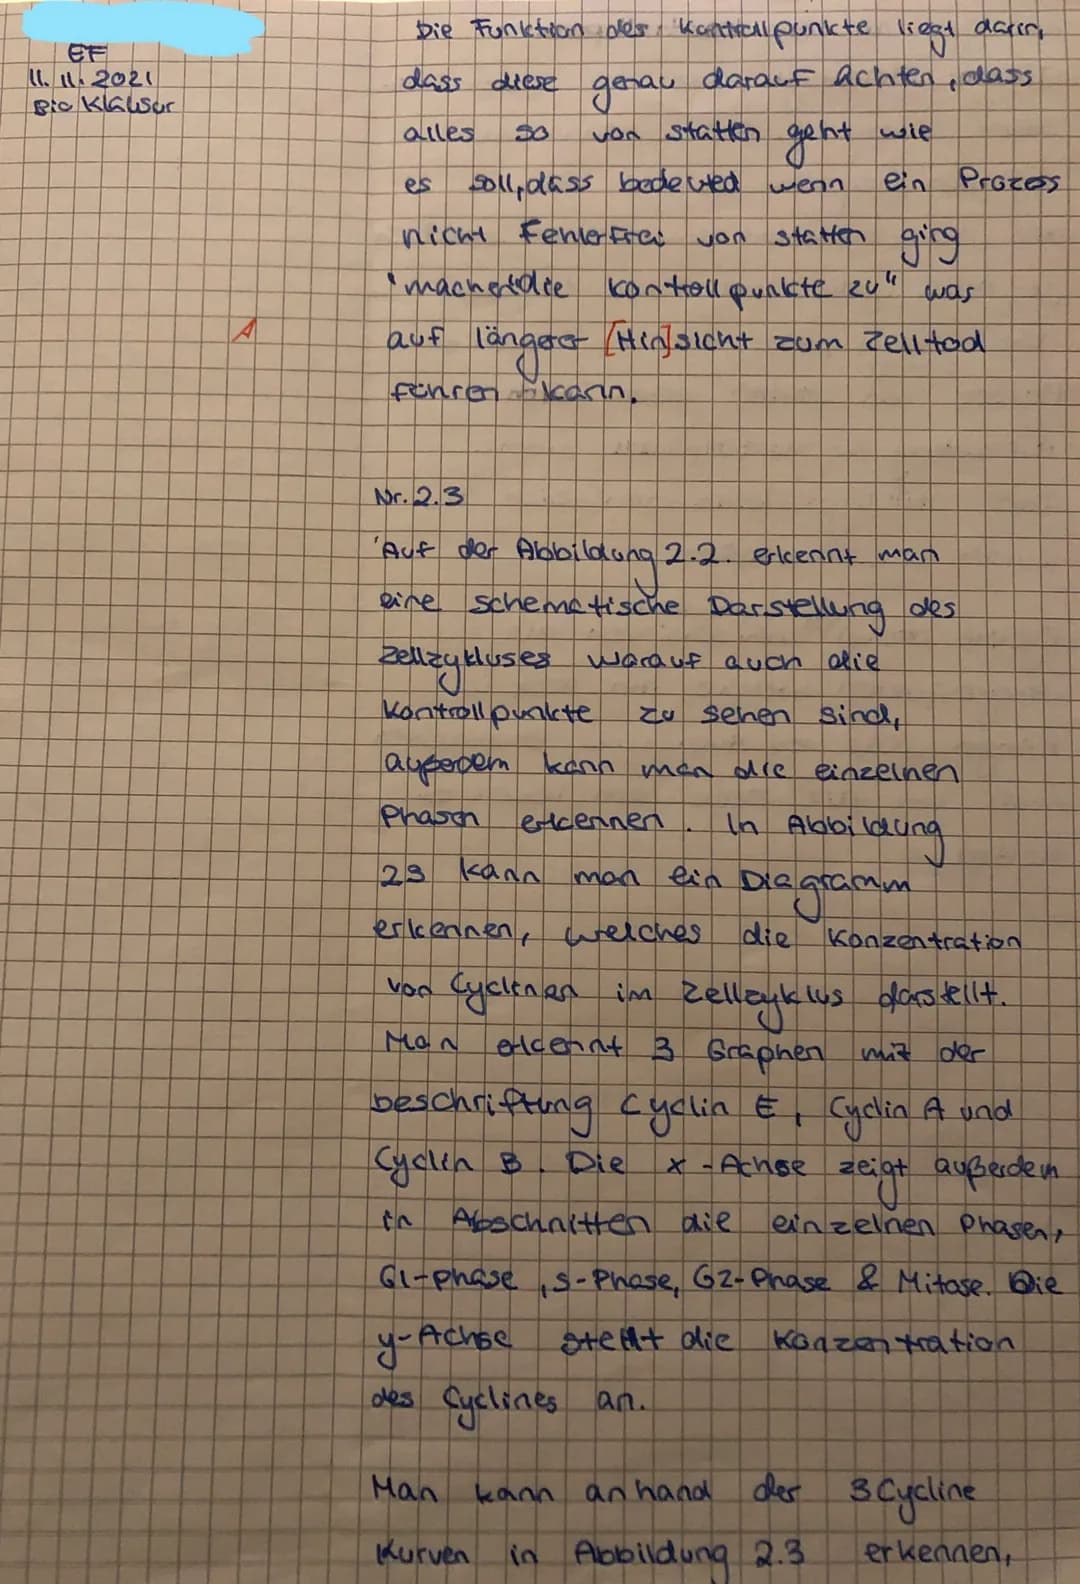 EF
11.11.2021
Bio Klausur
Die Funktion der Kontrollpunkte liegt darin,
dass diese genau darauf achten, dass
alles so von statten geht wie
es soll, dass bedeuted wenn ein Prozess
nicht Fehlerfrei von statten ging
"machen die Kontrollpunkte zu" was
A
auf längerer [Hin]sicht zum Zelltod
führen kann.
Nr. 2.3
Auf der Abbildung 2.2. erkennt man
eine schematische Darstellung des
Zellzykluses worauf auch die
Kontrollpunkte zu sehen sind,
außerdem kann man die einzelnen
Phasen erkennen. In Abbildung
2.3 kann man ein Diagramm
erkennen, welches die Konzentration
von Cyclinen im Zellzyklus darstellt.
Man erkennt 3 Graphen mit der
beschriftung Cyclin E, Cyclin A und
Cyclin B. Die x-Achse zeigt außerdem
in Abschnitten die einzelnen Phasen,
G1-phase, S-Phase, G2-Phase & Mitose. Die
y-Achse stellt die Konzentration
des Cyclines an.
Man kann anhand der 3 Cycline
Kurven in Abbildung 2.3 erkennen,